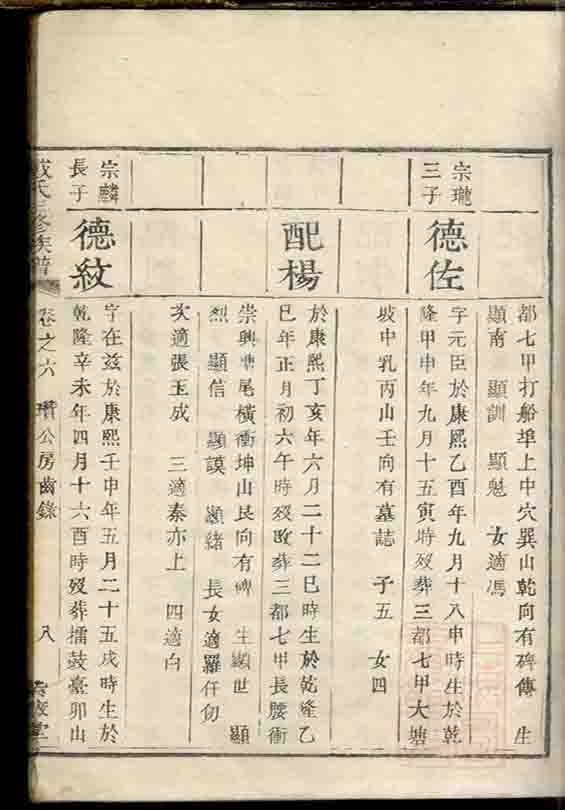 都七甲打船埠上中穴巽山乾向有碑傳　生
顯南　顯訓　顯魁　女適馮
宗瓏
三子
德佐
字元臣於康熙乙酉年九月十八申時生於乾
隆甲申年九月十五寅時歿葬三都七甲大塘
坡中乳丙山壬向有墓誌　子五　女四
配楊
於康熙丁亥年六月二十二巳時生於乾隆乙
巳年正月初六午時歿改葬三都七甲長腰衝
崇興塘尾橫衝坤山艮向有碑　生顯世　顯
烈　顯信　顯謨　顯緒　長女適羅仟仞
次適張玉成　三適秦亦上　四適白
宗麟
長子
德紋
字在茲於康熙壬申年五月二十五戌時生於
乾隆辛未年四月十六酉時歿葬擂鼓臺卯山
氏三修族譜
卷之六
公房齒錄
八